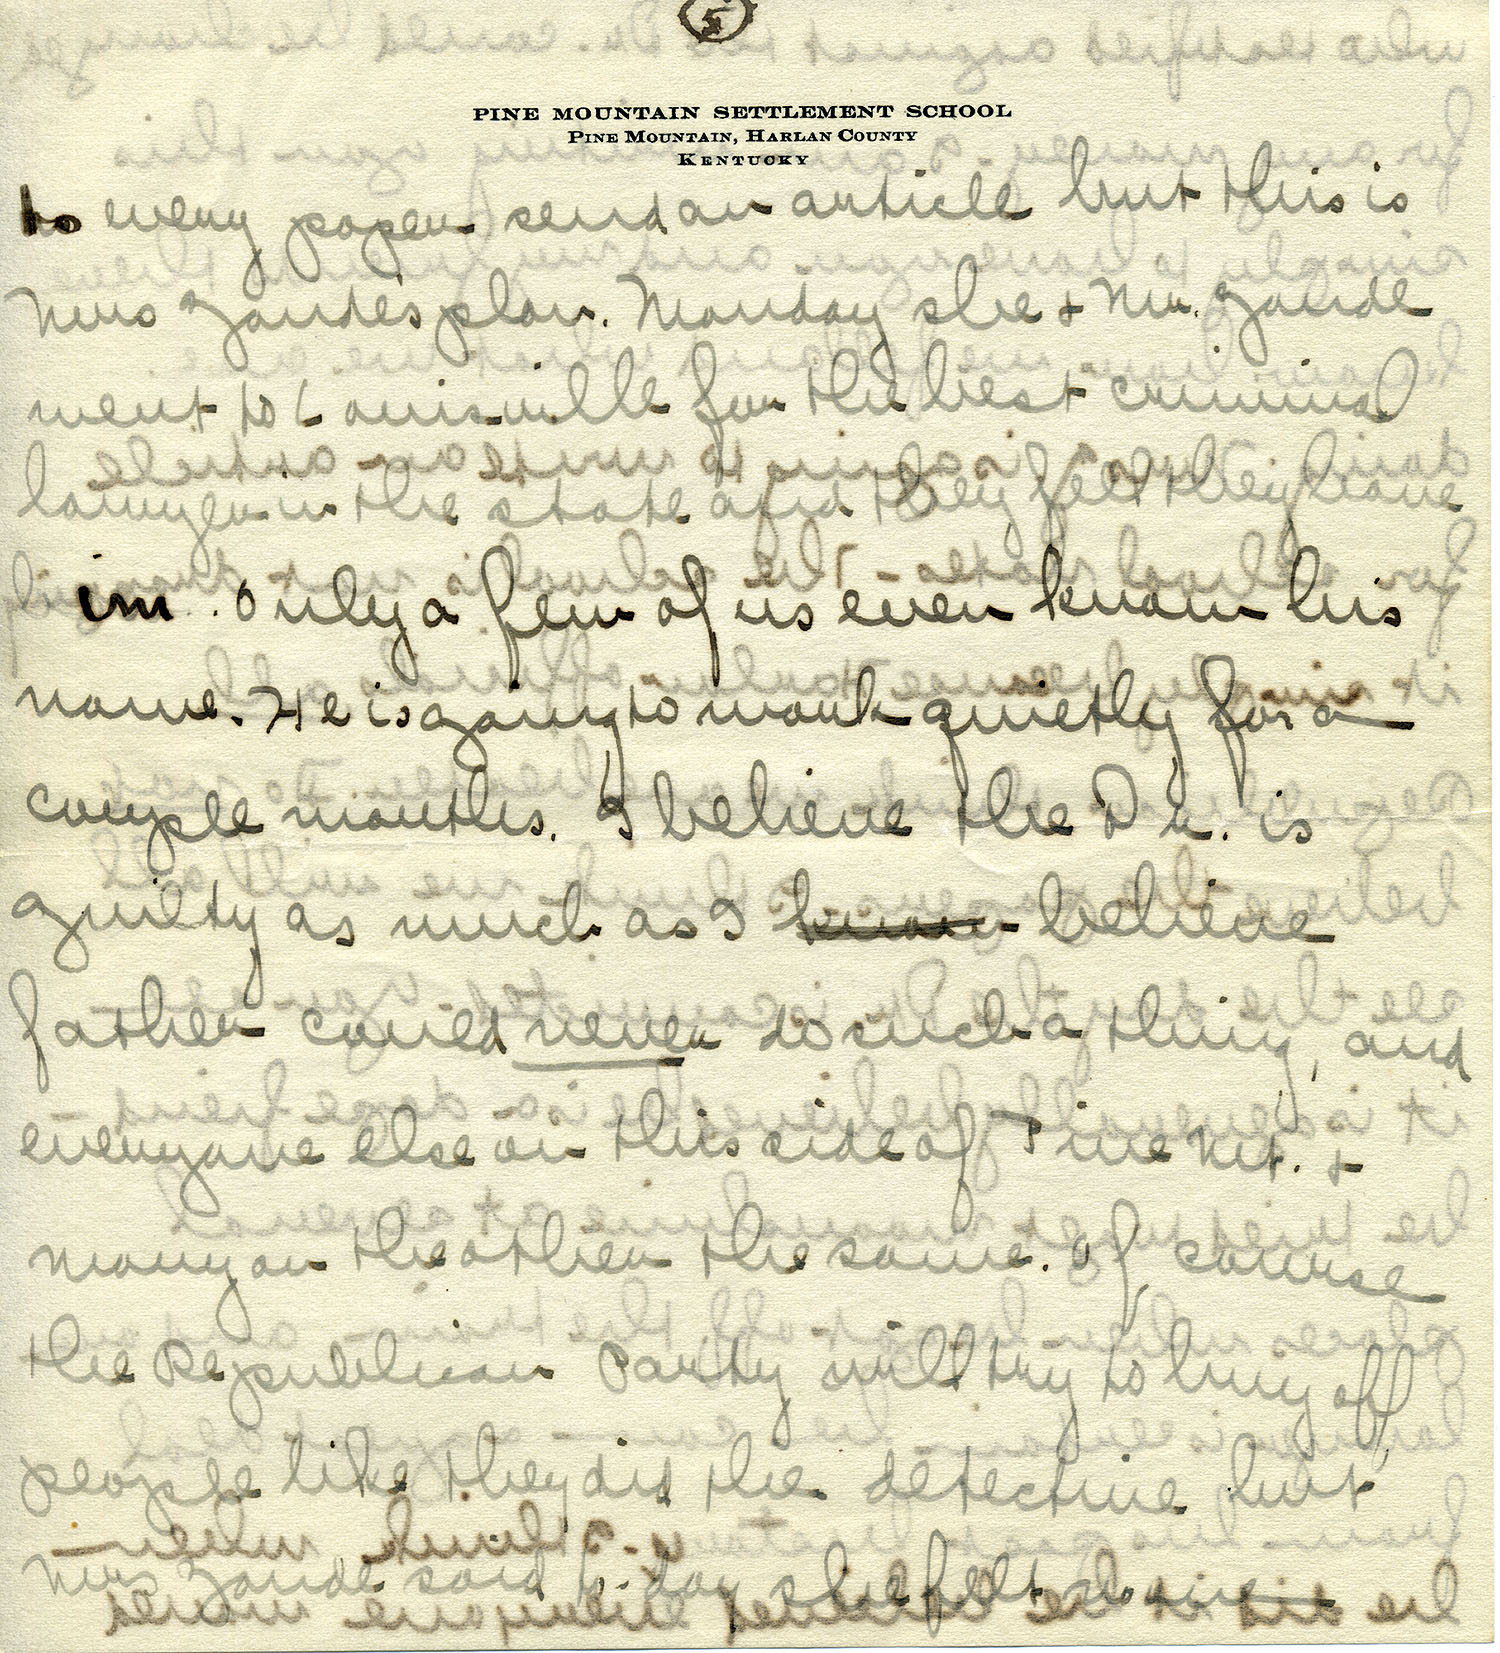 5
PINE MOUNTAIN SETTLEMENT SCHOOL
PINE MOUNTAIN, HARLAN COUNTY
KENTUCKY
to every paper send an article but this is
Mrs Zande's plan. Monday she + Mr. Zande
went to Louisville for the best criminal
lawyer in the state and they felt they have
im. Only a few of us even know his
name. He is going to work quietly for a
couple months. I believe the Dr. is
guilty as much as I know believe
father could never do such a thing, and
everyone else on this side of Pine Mt. +
many on the other the same. Of course
the Republican Party will try to buy off
people like they did the detective but
Mrs Zande said to-day she felt